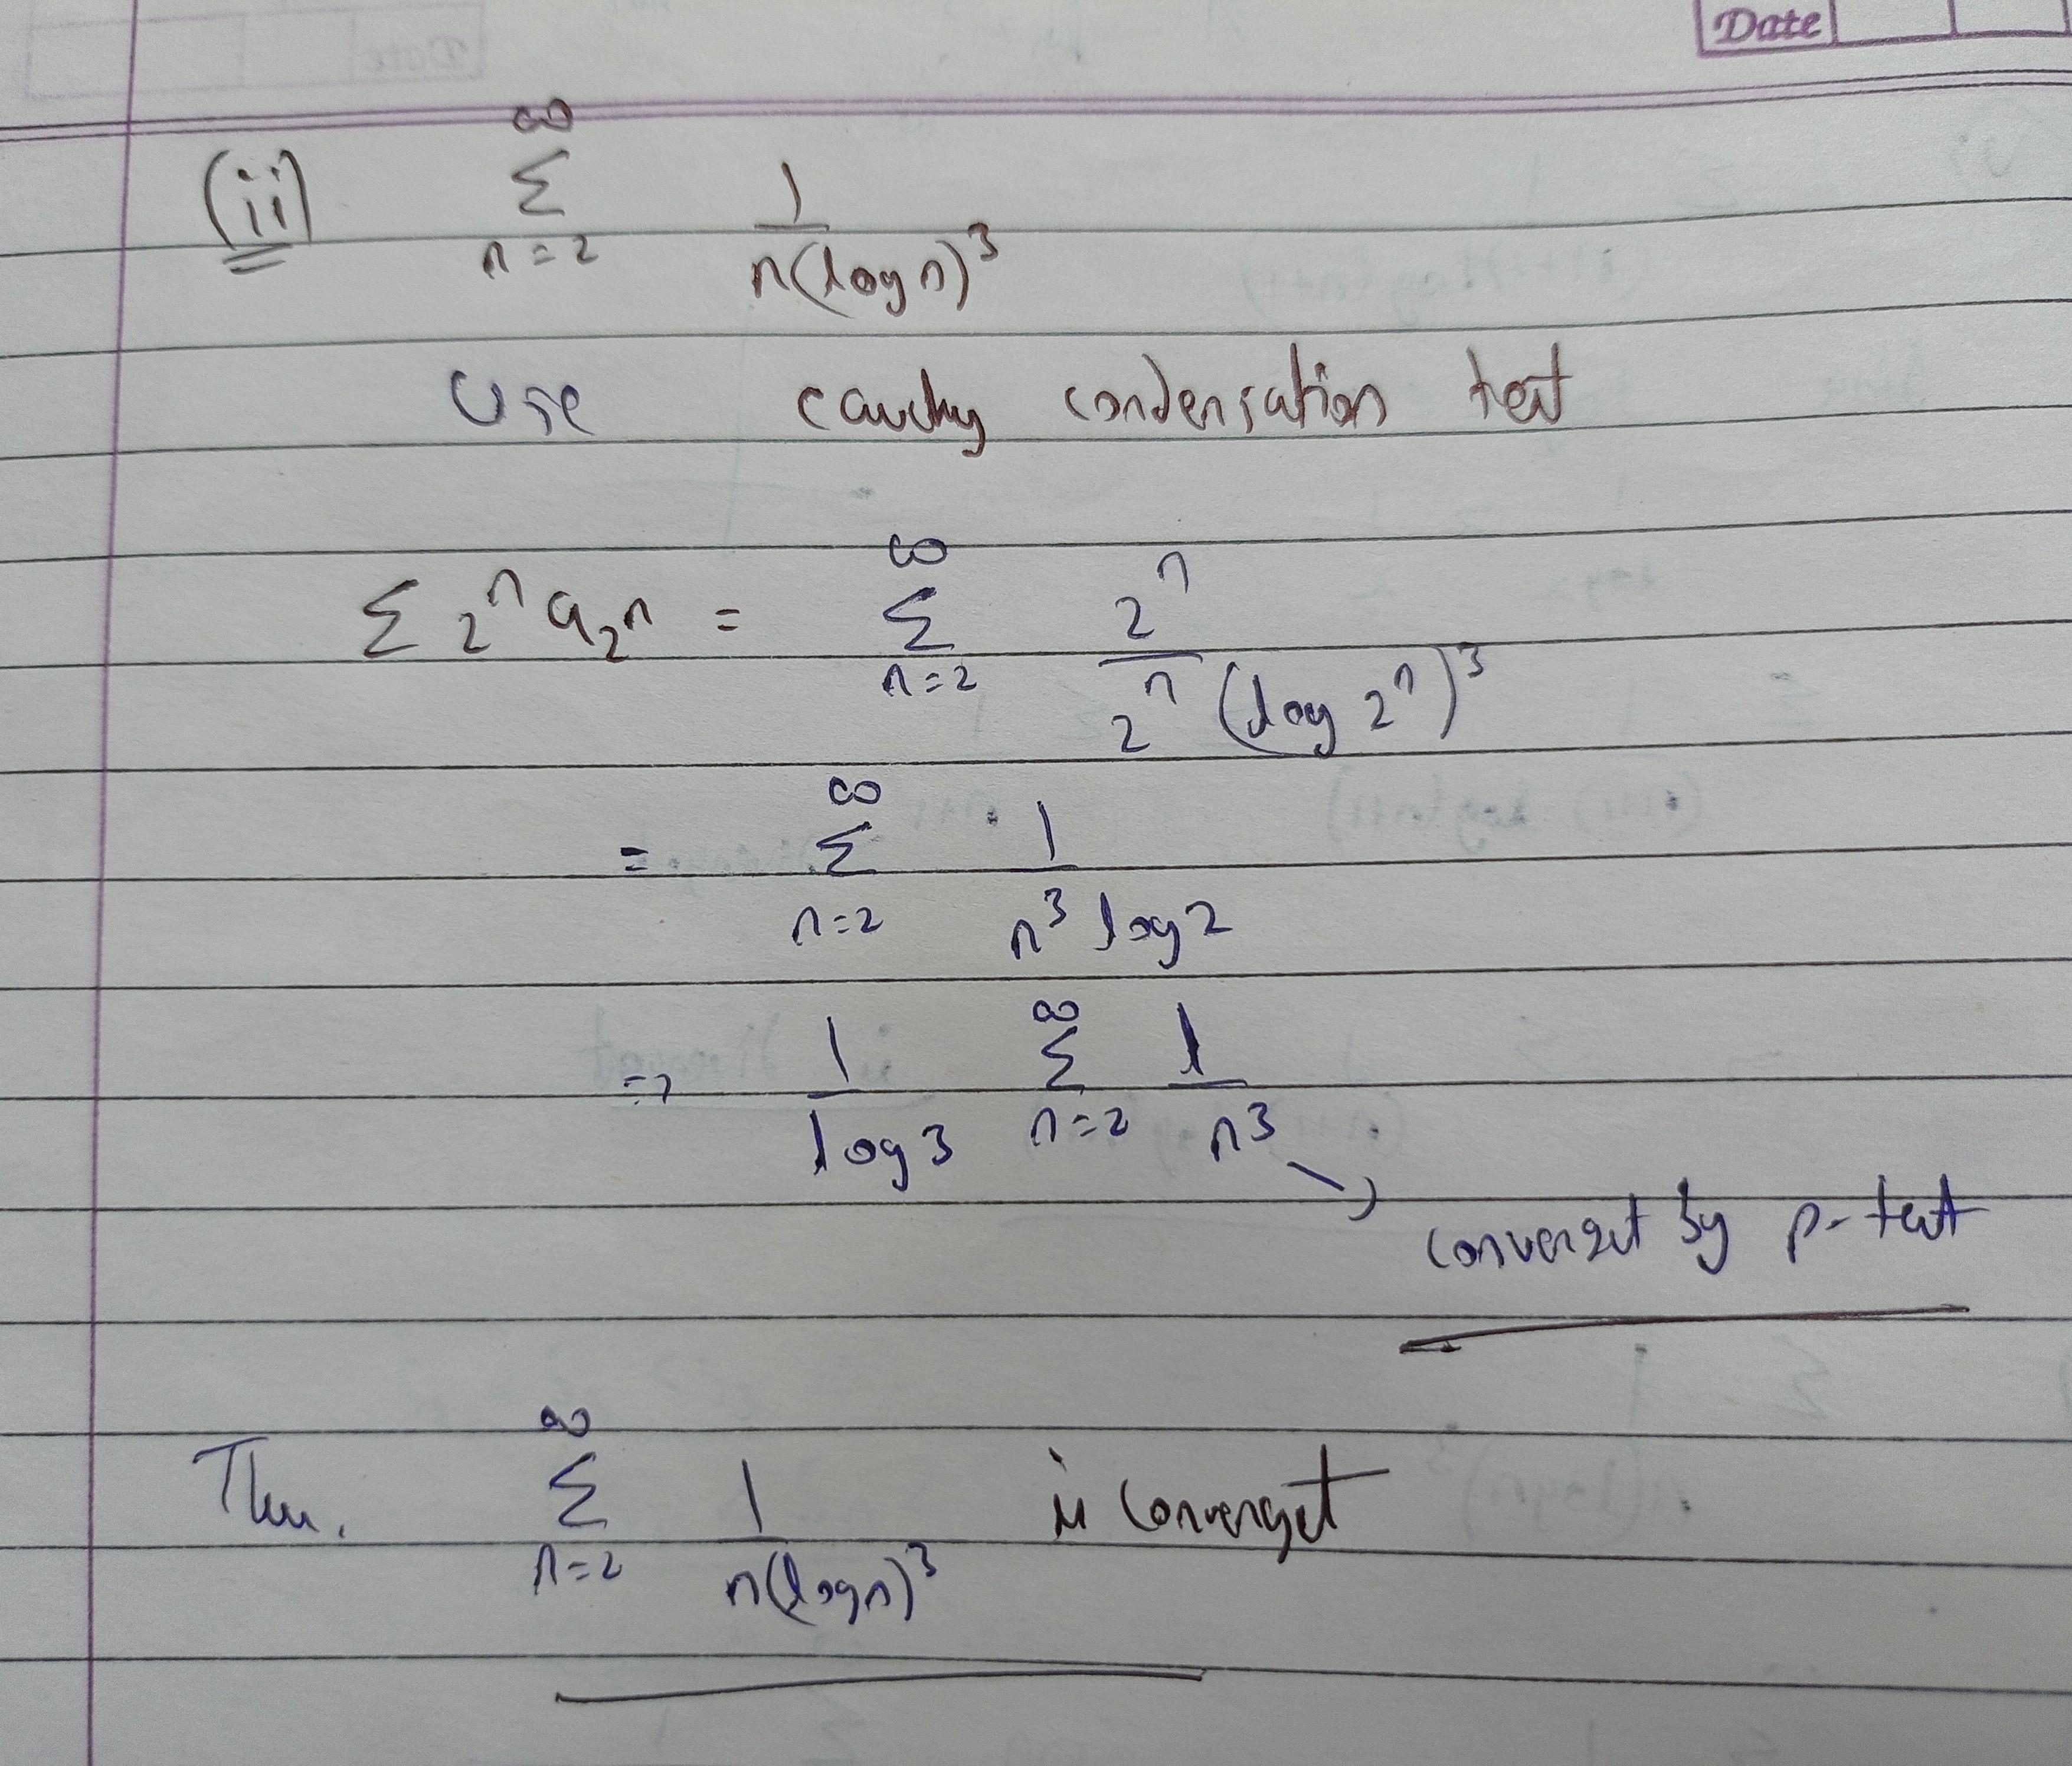 Date
(ii) ∞ Σ n=2 1 / n(log n)^3
Use cauchy condensation test
Σ 2^n a_2^n = ∞ Σ n=2 2^n / 2^n (log 2^n)^3
= ∞ Σ n=2 1 / n^3 log 2
=> 1 / log 3 ∞ Σ n=2 1 / n^3
convergent by p-test
∞ Σ n=2 1 / n(log n)^3 is convergent